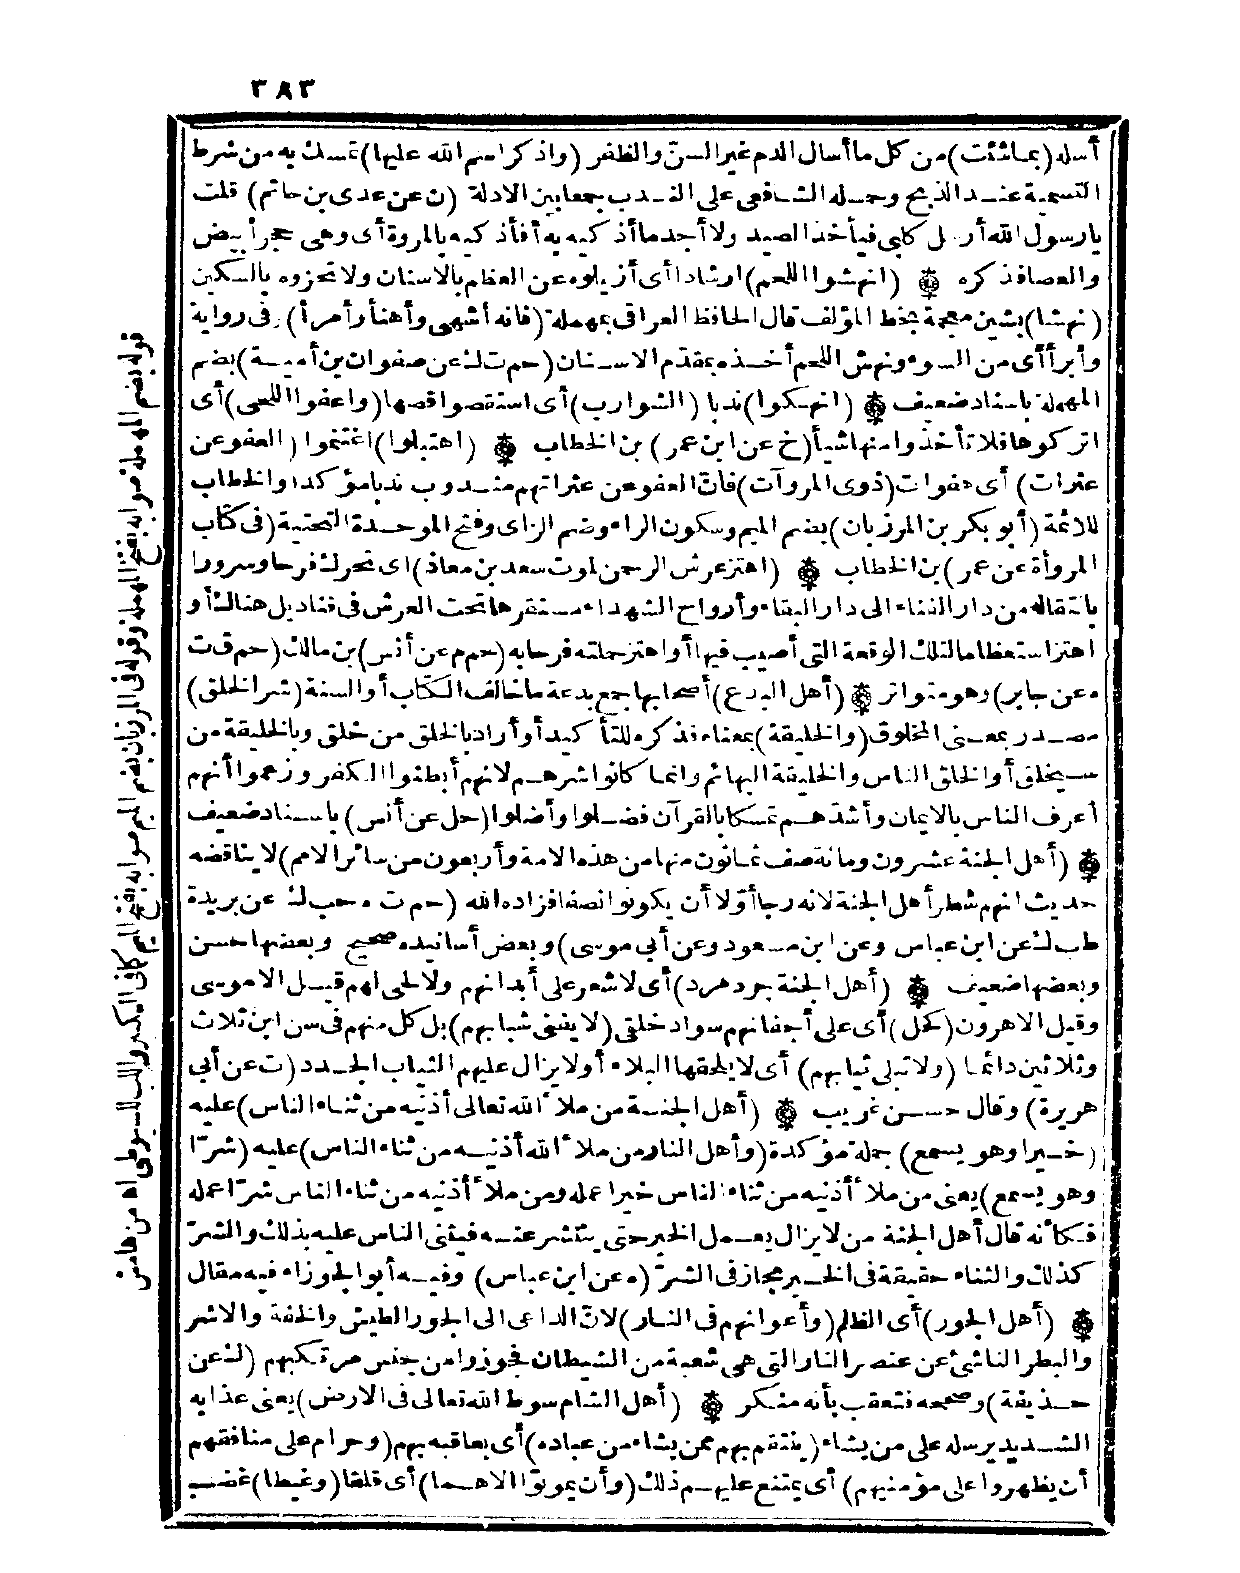 ٣٨٣
أسله (بما شئت) من كل ما أسال الدم غير السن والظفر (واذكر اسم الله عليها) تمسك به من شرط
التسمية عند الذبح وحمله الشافعي على الندب جمعا بين الادلة (ن عن عدى بن حاتم) قلت
يا رسول الله أرسل كلبي فيأخذ الصيد ولا أجد ما أذكيه به أفأذكيه بالمروة أى وهى حجر أبيض
والعصا فذكره ۞ (انهشوا اللحم) ارشادا أى أزيلوه عن العظم بالاسنان ولا تحزوه بالسكين
(نهشا) بشين معجمة بخط المؤلف قال الحافظ العراقى بمهملة (فانه أشهى وأهنأ وأمرأ) فى رواية
وأبرأ أى من السوء ونهش اللحم أخذه بمقدم الاسنان (حم ت ك عن صفوان بن أمية) بضم
المهملة باسناد ضعيف ۞ (انهكوا) ندبا (الشوارب) أى استقصوا قصها (واعفوا اللحى) أى
اتركوها فلا تأخذوا منها شيأ (خ عن ابن عمر) بن الخطاب ۞ (اهتبلوا) اغتنموا (العفو عن
عثرات) أى هفوات (ذوى المروآت) فان العفو عن عثراتهم مندوب ندبا مؤكدا والخطاب
للائمة (أبو بكر بن المرزبان) بضم الميم وسكون الراء وضم الزاى وفتح الموحدة التحتية (فى كتاب
المروأة عن عمر) بن الخطاب ۞ (اهتز عرش الرحمن لموت سعد بن معاذ) اى تحرك فرحا وسرورا
بانتقاله من دار الفناء الى دار البقاء وأرواح الشهداء مستقرها تحت العرش فى قناديل هناك أو
اهتز استعظاما لتلك الوقعة التى أصيب فيها أو اهتز حملته فرحا به (حم م عن أنس) بن مالك (حم ق ت
ه عن جابر) وهو متواتر ۞ (أهل البدع) أصحابها جمع بدعة ما خالف الكتاب أو السنة (شر الخلق)
مصدر بمعنى المخلوق (والخليقة) بمعناه فذكره للتأكيد أو أراد بالخلق من خلق وبالخليقة من
سيخلق أو الخلق الناس والخليقة البهائم وانما كانوا شرهم لانهم أبطنوا الكفر وزعموا أنهم
أعرف الناس بالايمان وأشدهم تمسكا بالقرآن فضلوا وأضلوا (حل عن أنس) باسناد ضعيف
۞ (أهل الجنة عشرون ومائة صف ثمانون منها من هذه الامة وأربعون من سائر الامم) لا يناقضه
حديث انهم شطر أهل الجنة لانه رجا أولا أن يكونوا نصفا فزاده الله (حم ت ه حب ك عن بريدة
طب ك عن ابن عباس وعن ابن مسعود وعن أبي موسى) وبعض أسانيده صحيح وبعضها حسن
وبعضها ضعيف ۞ (أهل الجنة جرد مرد) أى لا شعر على أبدانهم ولا لحى لهم قيل الا موسى
وقيل الا هرون (كحل) أى على أجفانهم سواد خلقى (لا يفنى شبابهم) بل كل منهم فى سن ابن ثلاث
وثلاثين دائما (ولا تبلى ثيابهم) أى لا يلحقها البلاء أو لا يزال عليهم الثياب الجدد (ت عن أبي
هريرة) وقال حسن غريب ۞ (أهل الجنة من ملأ الله تعالى أذنيه من ثناء الناس) عليه
(خيرا وهو يسمع) جملة مؤكدة (وأهل النار من ملأ الله أذنيه من ثناء الناس) عليه (شرّا
وهو يسمع) يعنى من ملأ أذنيه من ثناء الناس خيرا عمله ومن ملأ أذنيه من ثناء الناس شرّا عمله
فكأنه قال أهل الجنة من لا يزال يعمل الخير حتى ينتشر عنه فيثنى الناس عليه بذلك والشرّ
كذلك والثناء حقيقة فى الخير مجاز فى الشرّ (ه عن ابن عباس) وفيه أبو الجوزاء فيه مقال
۞ (أهل الجور) أى الظلم (وأعوانهم فى النار) لانّ الداعى الى الجور الطيش والخفة والاشر
والبطر الناشئ عن عنصر النار التى هى شعبة من الشيطان فجوزوا من جنس مرتكبهم (ك عن
حذيفة) وصححه فتعقب بأنه منكر ۞ (أهل الشام سوط الله تعالى فى الارض) يعنى عذابه
الشديد يرسله على من يشاء (ينتقم بهم ممن يشاء من عباده) أى يعاقبه بهم (وحرام على منافقهم
أن يظهروا على مؤمنيهم) أى يمتنع عليهم ذلك (وأن يموتوا الا هما) أى قلقا (وغيظا) غضب
قوله بضم المهملة صوابه بفتح المهملة وقوله فى المرزبان بضم الميم صوابه بفتح الميم كما فى الكبير واللب للسيوطى اه من هامش